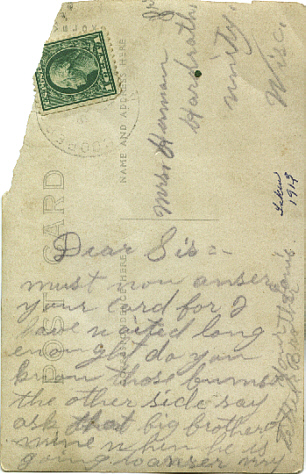 Dear Sis:-
must now anser
your card for I
ave waited long
enought do you
know those bums
the other side say
ask that big brother
mine when he is
going to anser my
Miss Herman
Unity.
Wisc.
Taken
1913
POST CARD
CORRESPONDENCE HERE
NAME AND ADDRESS HERE
1 CENT 1